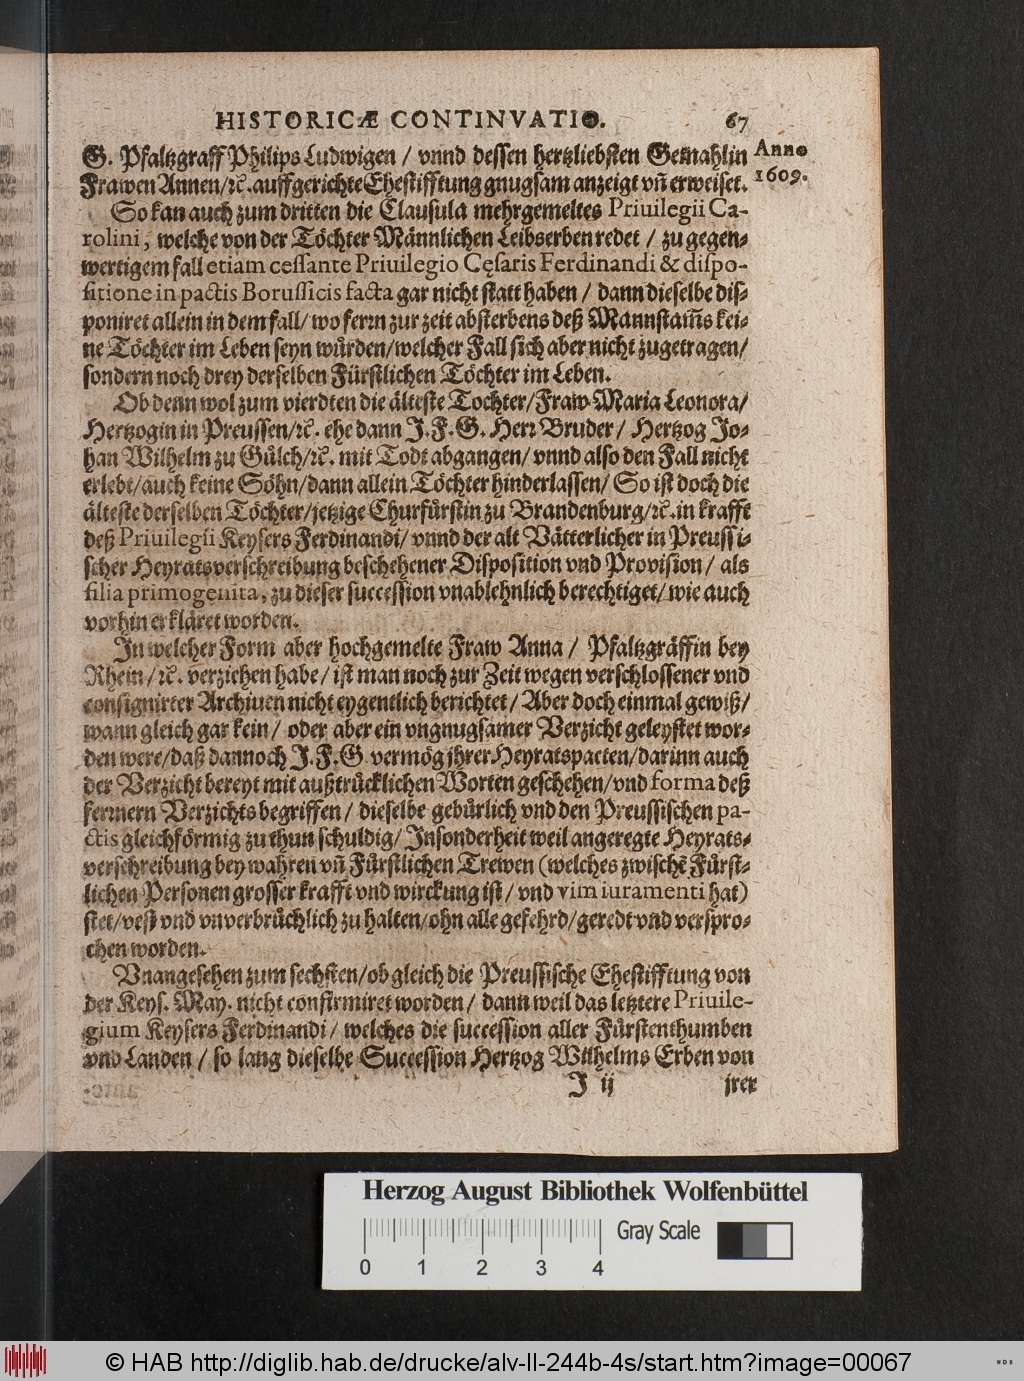 HISTORICÆ CONTINVATIO. 67
G. Pfaltzgraff Philips Ludwigen / vnnd dessen hertzliebsten Gemahlin Anno
Frawen Annen/ꝛc. auffgerichte Ehestifftung gnugsam anzeigt vñ erweiset. 1609.
So kan auch zum dritten die Clausula mehrgemeltes Priuilegii Ca-
rolini, welche von der Töchter Männlichen Leibserben redet / zu gegen-
wertigem fall etiam cessante Priuilegio Cęsaris Ferdinandi & dispo-
sitione in pactis Borussicis facta gar nicht statt haben / dann dieselbe dis-
poniret allein in dem fall/ wo ferrn zur zeit absterbens deß Mannstam̃s kei-
ne Töchter im Leben seyn würden/welcher Fall sich aber nicht zugetragen/
sondern noch drey derselben Fürstlichen Töchter im Leben.
Ob denn wol zum vierdten die älteste Tochter/Fraw Maria Leonora/
Hertzogin in Preussen/ꝛc. ehe dann J. F. G. Herr Bruder / Hertzog Jo-
han Wilhelm zu Gülch/ꝛc. mit Todt abgangen/ vnnd also den Fall nicht
erlebt/auch keine Söhn/dann allein Töchter hinderlassen/ So ist doch die
älteste derselben Töchter/jetzige Churfürstin zu Brandenburg/ꝛc. in krafft
deß Priuilegii Keysers Ferdinandi/ vnnd der alt Vätterlicher in Preussi-
scher Heyratsverschreibung beschehener Disposition vnd Provision / als
filia primogenita, zu dieser succession vnablehnlich berechtiget/ wie auch
vorhin erkläret worden.
In welcher Form aber hochgemelte Fraw Anna / Pfaltzgräffin bey
Rhein/ꝛc. verziehen habe/ ist man noch zur Zeit wegen verschlossener vnd
consignirter Archiuen nicht eygentlich berichtet/ Aber doch einmal gewiß/
wann gleich gar kein / oder aber ein vngnugsamer Verzicht geleystet wor-
den were/daß dannoch J. F. G. vermög jhrer Heyratspacten/darinn auch
der Verzicht bereyt mit außtrücklichen Worten geschehen/vnd forma deß
fernern Verzichts begriffen / dieselbe gebürlich vnd den Preussischen pa-
ctis gleichförmig zu thun schuldig/ Insonderheit weil angeregte Heyrats-
verschreibung bey wahren vñ Fürstlichen Trewen (welches zwischẽ Fürst-
lichen Personen grosser krafft vnd wirckung ist / vnd vim iuramenti hat)
stet/vest vnd vnverbrüchlich zu halten/ohn alle gefehrd/geredt vnd verspro-
chen worden.
Vnangesehen zum sechsten/ob gleich die Preussische Ehestifftung von
der Keys. May. nicht confirmiret worden / dann weil das letztere Priuile-
gium Keysers Ferdinandi / welches die succession aller Fürstenthumben
vnd Landen / so lang dieselbe Succession Hertzog Wilhelms Erben von
J ij jrer
Herzog August Bibliothek Wolfenbüttel
Gray Scale
0 1 2 3 4
© HAB http://diglib.hab.de/drucke/alv-ll-244b-4s/start.htm?image=00067